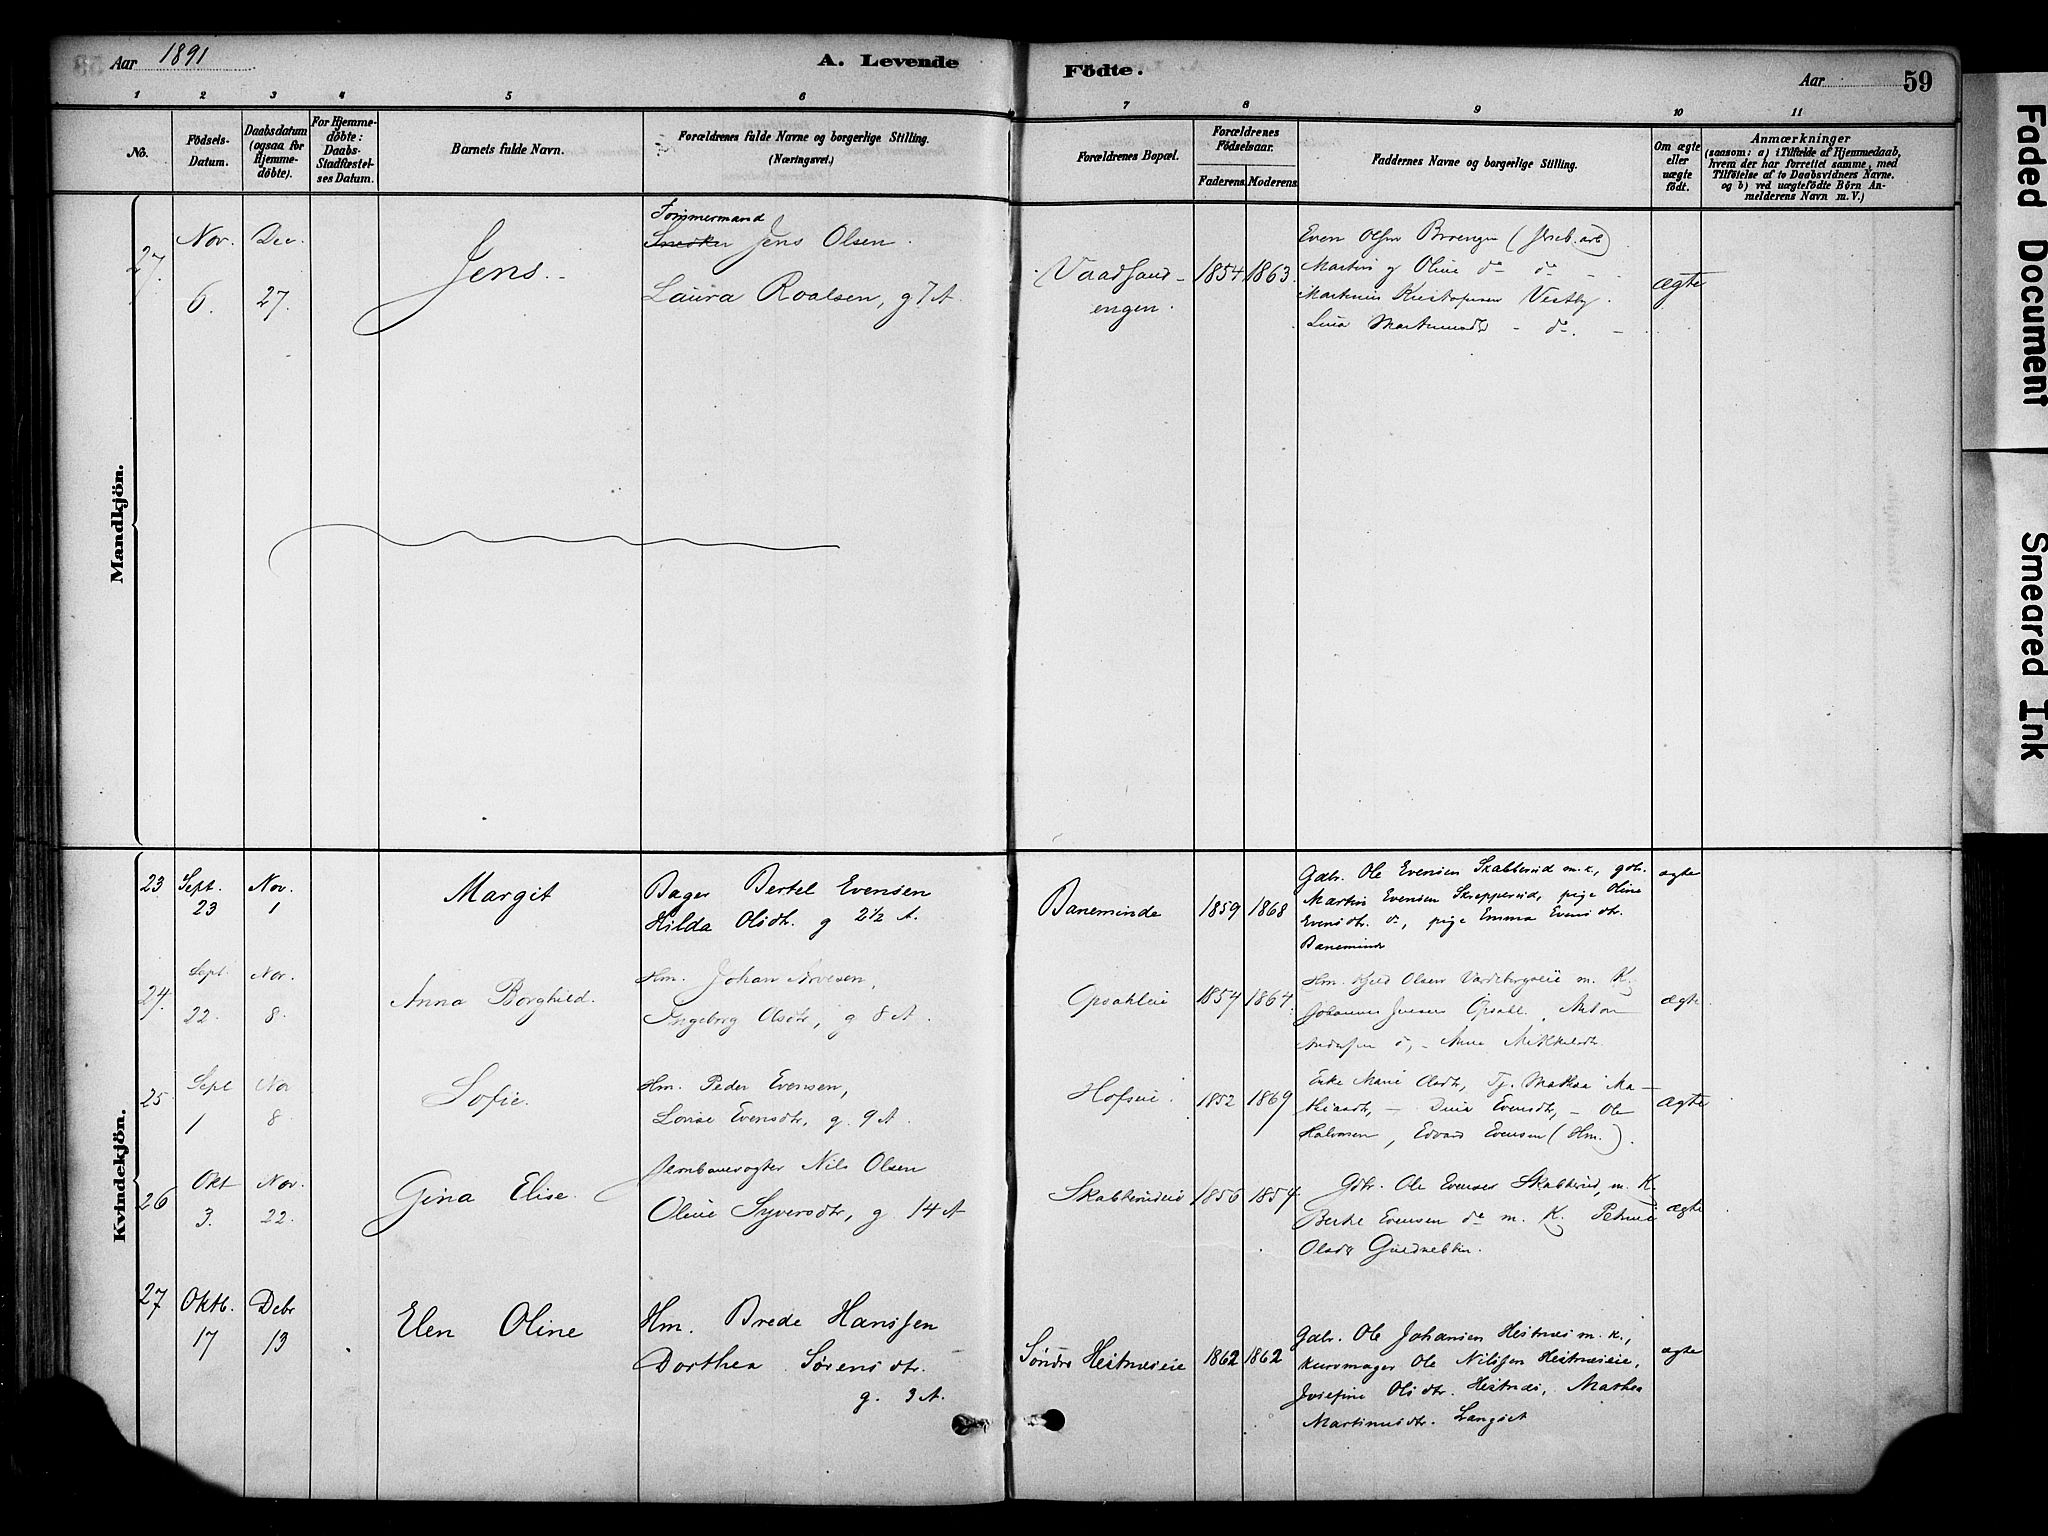 Aar 1891
A. Levende
Födte.
Aar 59
1 2 3 4 5 6 7 8 9 10 11
No.
Födsels-
Datum.
Daabsdatum
(ogsaa for
Hjemme-
döbte).
For Hjemme-
döbte:
Daabs-
Stadfæstel-
ses Datum.
Barnets fulde Navn.
Forældrenes fulde Navne og borgerlige Stilling.
(Næringsvei.)
Forældrenes Bopæl.
Forældrenes
Födselsaar.
Faderens. Moderens.
Faddernes Navne og borgerlige Stilling.
Om ægte
eller
uægte
födt.
Anmærkninger
(saasom: a) i Tilfælde af Hjemmedaab,
hvem der har forrettet samme, med
Tilföielse af to Daabsvidners Navne.
og b) ved uægtefödte Börn An-
melderens Navn m. V.)
Mandkjön.
27.
Nov.
6.
Dec.
27.
Jens.
Tømmermand
Snedker Jens Olsen.
Laura Roalsen, g 7 A.
Vaadsand-
engen.
1854 1863
Even Olsen
Martin og Oline do do
Martinius Kristofersen Vestby.
Lina do
ægte
Kvindekjön.
23 Sept.
23
Nov.
1
Margit
Bager Bertel Evensen
Hilda Olsdtr. g 2 1/2 A.
Baneminde
1859 1868
Gdbr. Ole Evensen Skabberud m.k., gdbr.
Martin Evensen Skrepperud, pige Oline
Evensdtr. do, pige Emma Evensdtr.
Baneminde
ægte
24.
Sept.
22
Nov.
8.
Anna Borghild.
Hm. Johan Arvesen,
Ingeborg Olsdtr, g 8 A.
Opsahleie
1854 1864.
Hm. Kjeld Olsen m. K.
Johannes Jensen Opsahl, Anton
Andersen do, - Anne
ægte
25
Sept
1
Nov
8
Sofie.
Hm. Peder Evensen,
Lovise Evensdtr, g. 9 A.
Hofseie.
1852 1869
Enke Marie Olsdtr, Tj. Mathea Ma-
thiasdtr, - Dina Evensdtr, - Ole
Halvorsen, Edvard Evensen (Hm.).
ægte
26
Okt
3.
Nov.
22.
Gina Elise.
Jernbanevogter Nils Olsen
Oline Syversdtr, g. 14 A
Skabberudeie
1856 1854.
Gdbr. Ole Evensen Skabberud, m. K
Evensen do m. K.
Olsdtr
ægte
27
Oktb.
17
Debr
13
Elen Oline
Hm. Brede Hanssen
Dorthea Sørensdtr.
g. 3 A.
Søndre Heitnæseie
1862 1862
Gdbr. Ole Johansen Heitnæs m. k.,
kurvmager Ole Nilssen Heitnæseie,
Josefine Olsdtr. Heitnæs, Mathea
Martinusdtr. Langset
ægte
Faded Document
Smeared Ink